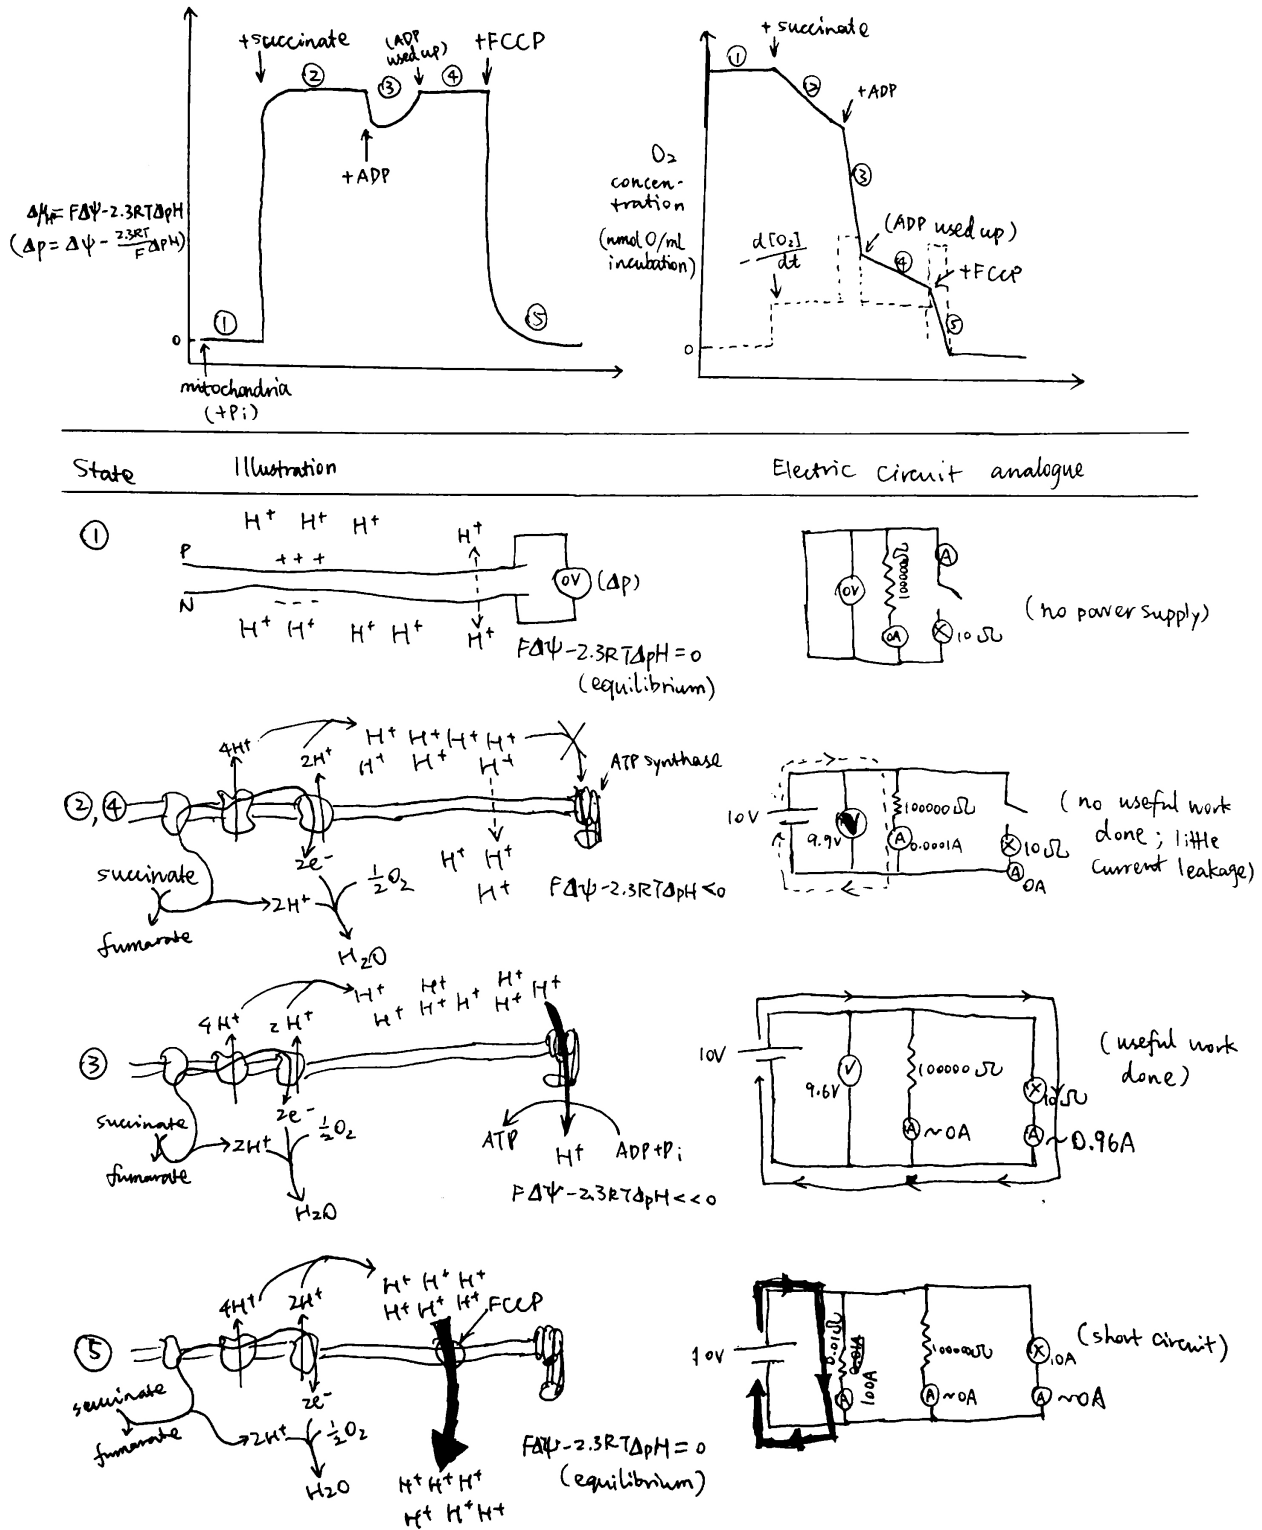 +succinate
(ADP
used up)
+FCCP
②
③
④
+ADP
Δμ̃H = FΔψ-2.3RTΔpH
(Δp = Δψ - 2.3RT/F ΔpH)
①
⑤
0
mitochondria
(+Pi)
+ succinate
①
②
+ADP
O₂
concen-
tration
(nmol O/mL
incubation)
③
(ADP used up)
- d[O₂]/dt
④
+FCCP
⑤
0
State
Illustration
Electric circuit analogue
①
H⁺ H⁺ H⁺
H⁺
P
+ + +
0V (Δp)
N
- - -
H⁺ H⁺ H⁺ H⁺
H⁺
FΔψ-2.3RTΔpH = 0
(equilibrium)
0V
100000Ω
A
0A
X 10Ω
(no power supply)
②,④
4H⁺
2H⁺
H⁺ H⁺ H⁺ H⁺
H⁺ H⁺ H⁺
ATP synthase
2e⁻
succinate
½O₂
H⁺ H⁺
H⁺
→2H⁺
fumarate
H₂O
FΔψ-2.3RTΔpH<0
10V
9.9V
V
100000Ω
A 0.0001A
X 10Ω
A 0A
(no useful work
done; little
current leakage)
③
4H⁺
2H⁺
H⁺ H⁺ H⁺ H⁺
H⁺ H⁺ H⁺ H⁺
2e⁻
succinate
½O₂
→2H⁺
fumarate
H₂O
ATP
H⁺
ADP+Pi
FΔψ-2.3RTΔpH<<0
10V
V
9.6V
100000Ω
A ~0A
X 10Ω
A ~0.96A
(useful work
done)
⑤
4H⁺
2H⁺
H⁺ H⁺ H⁺
H⁺ H⁺ H⁺
FCCP
2e⁻
succinate
½O₂
→2H⁺
fumarate
H₂O
H⁺ H⁺ H⁺
H⁺ H⁺ H⁺
FΔψ-2.3RTΔpH = 0
(equilibrium)
10V
0.01Ω
A
100A
100000Ω
A ~0A
X 10A
A ~0A
(short circuit)